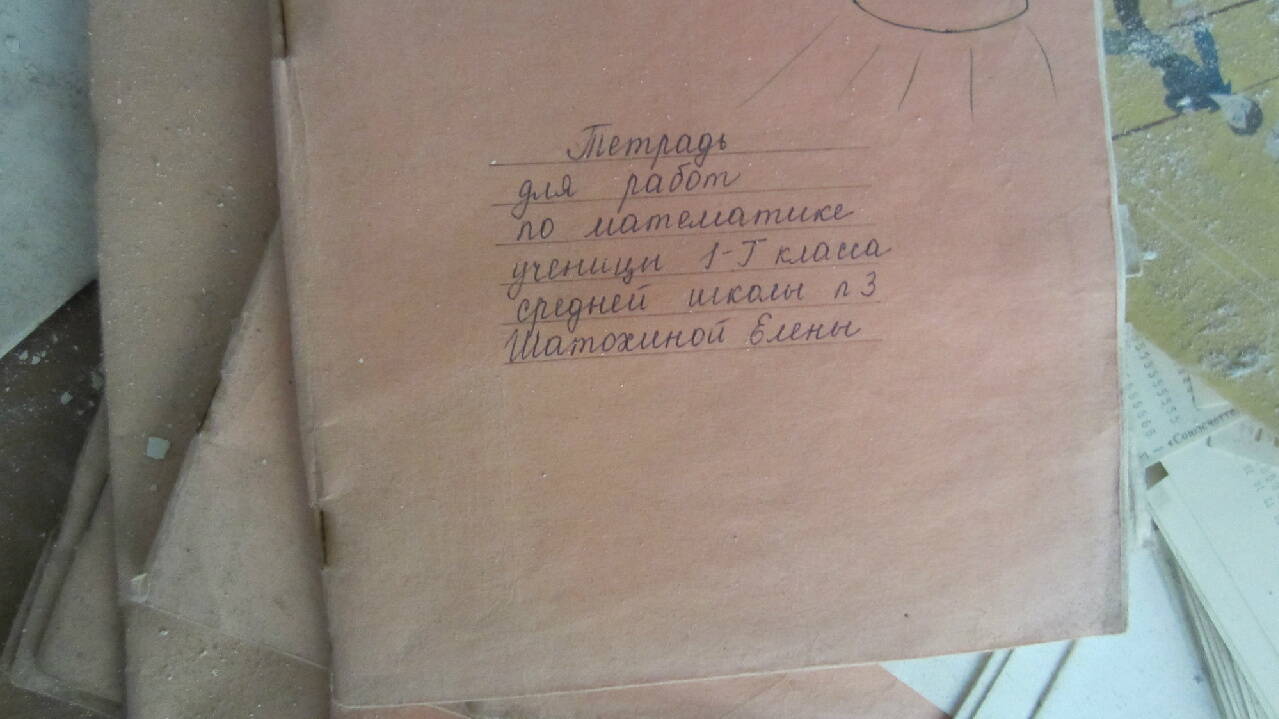 Тетрадь
для работ
по математике
ученицы 1-Г класса
средней школы n 3
Шатохиной Елены